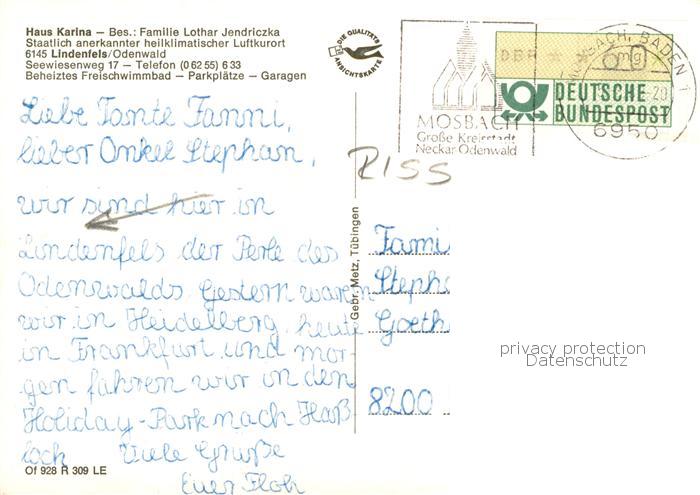 Haus Karina — Bes.: Familie Lothar Jendriczka
Staatlich anerkannter heilklimatischer Luftkurort
6145 Lindenfels/Odenwald
Seewiesenweg 17 — Telefon (0 62 55) 6 33
Beheiztes Freischwimmbad — Parkplätze — Garagen
DIE QUALITÄTS
ANSICHTSKARTE
MOSBACH
Große Kreisstadt
Neckar-Odenwald
DBP
DEUTSCHE
BUNDESPOST
MOSBACH, BADEN 1
mg
20
6950
RISS
Liebe Tante Fanni,
lieber Onkel Stephan,
wir sind hier in
Lindenfels der Perle des
Odenwalds. Gestern waren
wir in Heidelberg, heute
in Frankfurt und mor-
gen fahren wir in den
Holiday-Park nach Haß-
loch Viele Grüße
Euer Floh
Gebr. Metz, Tübingen
Fami
Steph
Goeth
8200
privacy protection
Datenschutz
Of 928 R 309 LE